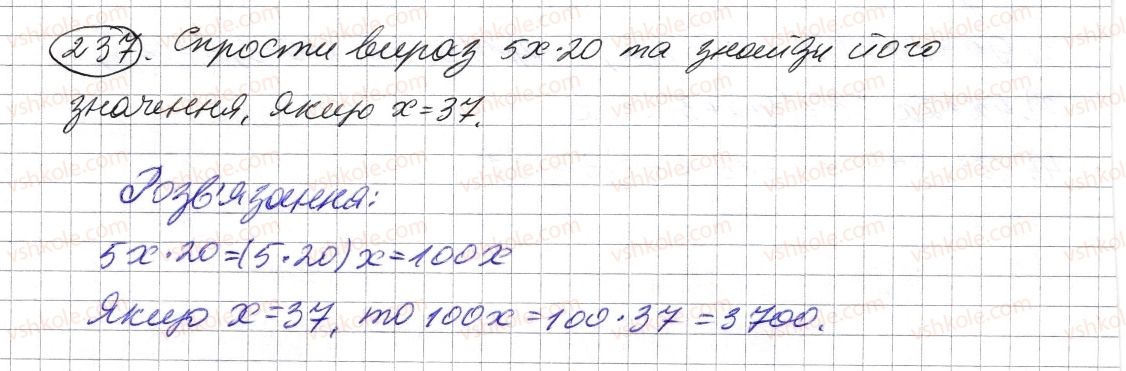 237). Спрости вираз 5x·20 та знайди його
значення, якщо x=37.
Розв'язання:
5x·20=(5·20)x=100x
Якщо x=37, то 100x=100·37=3700.